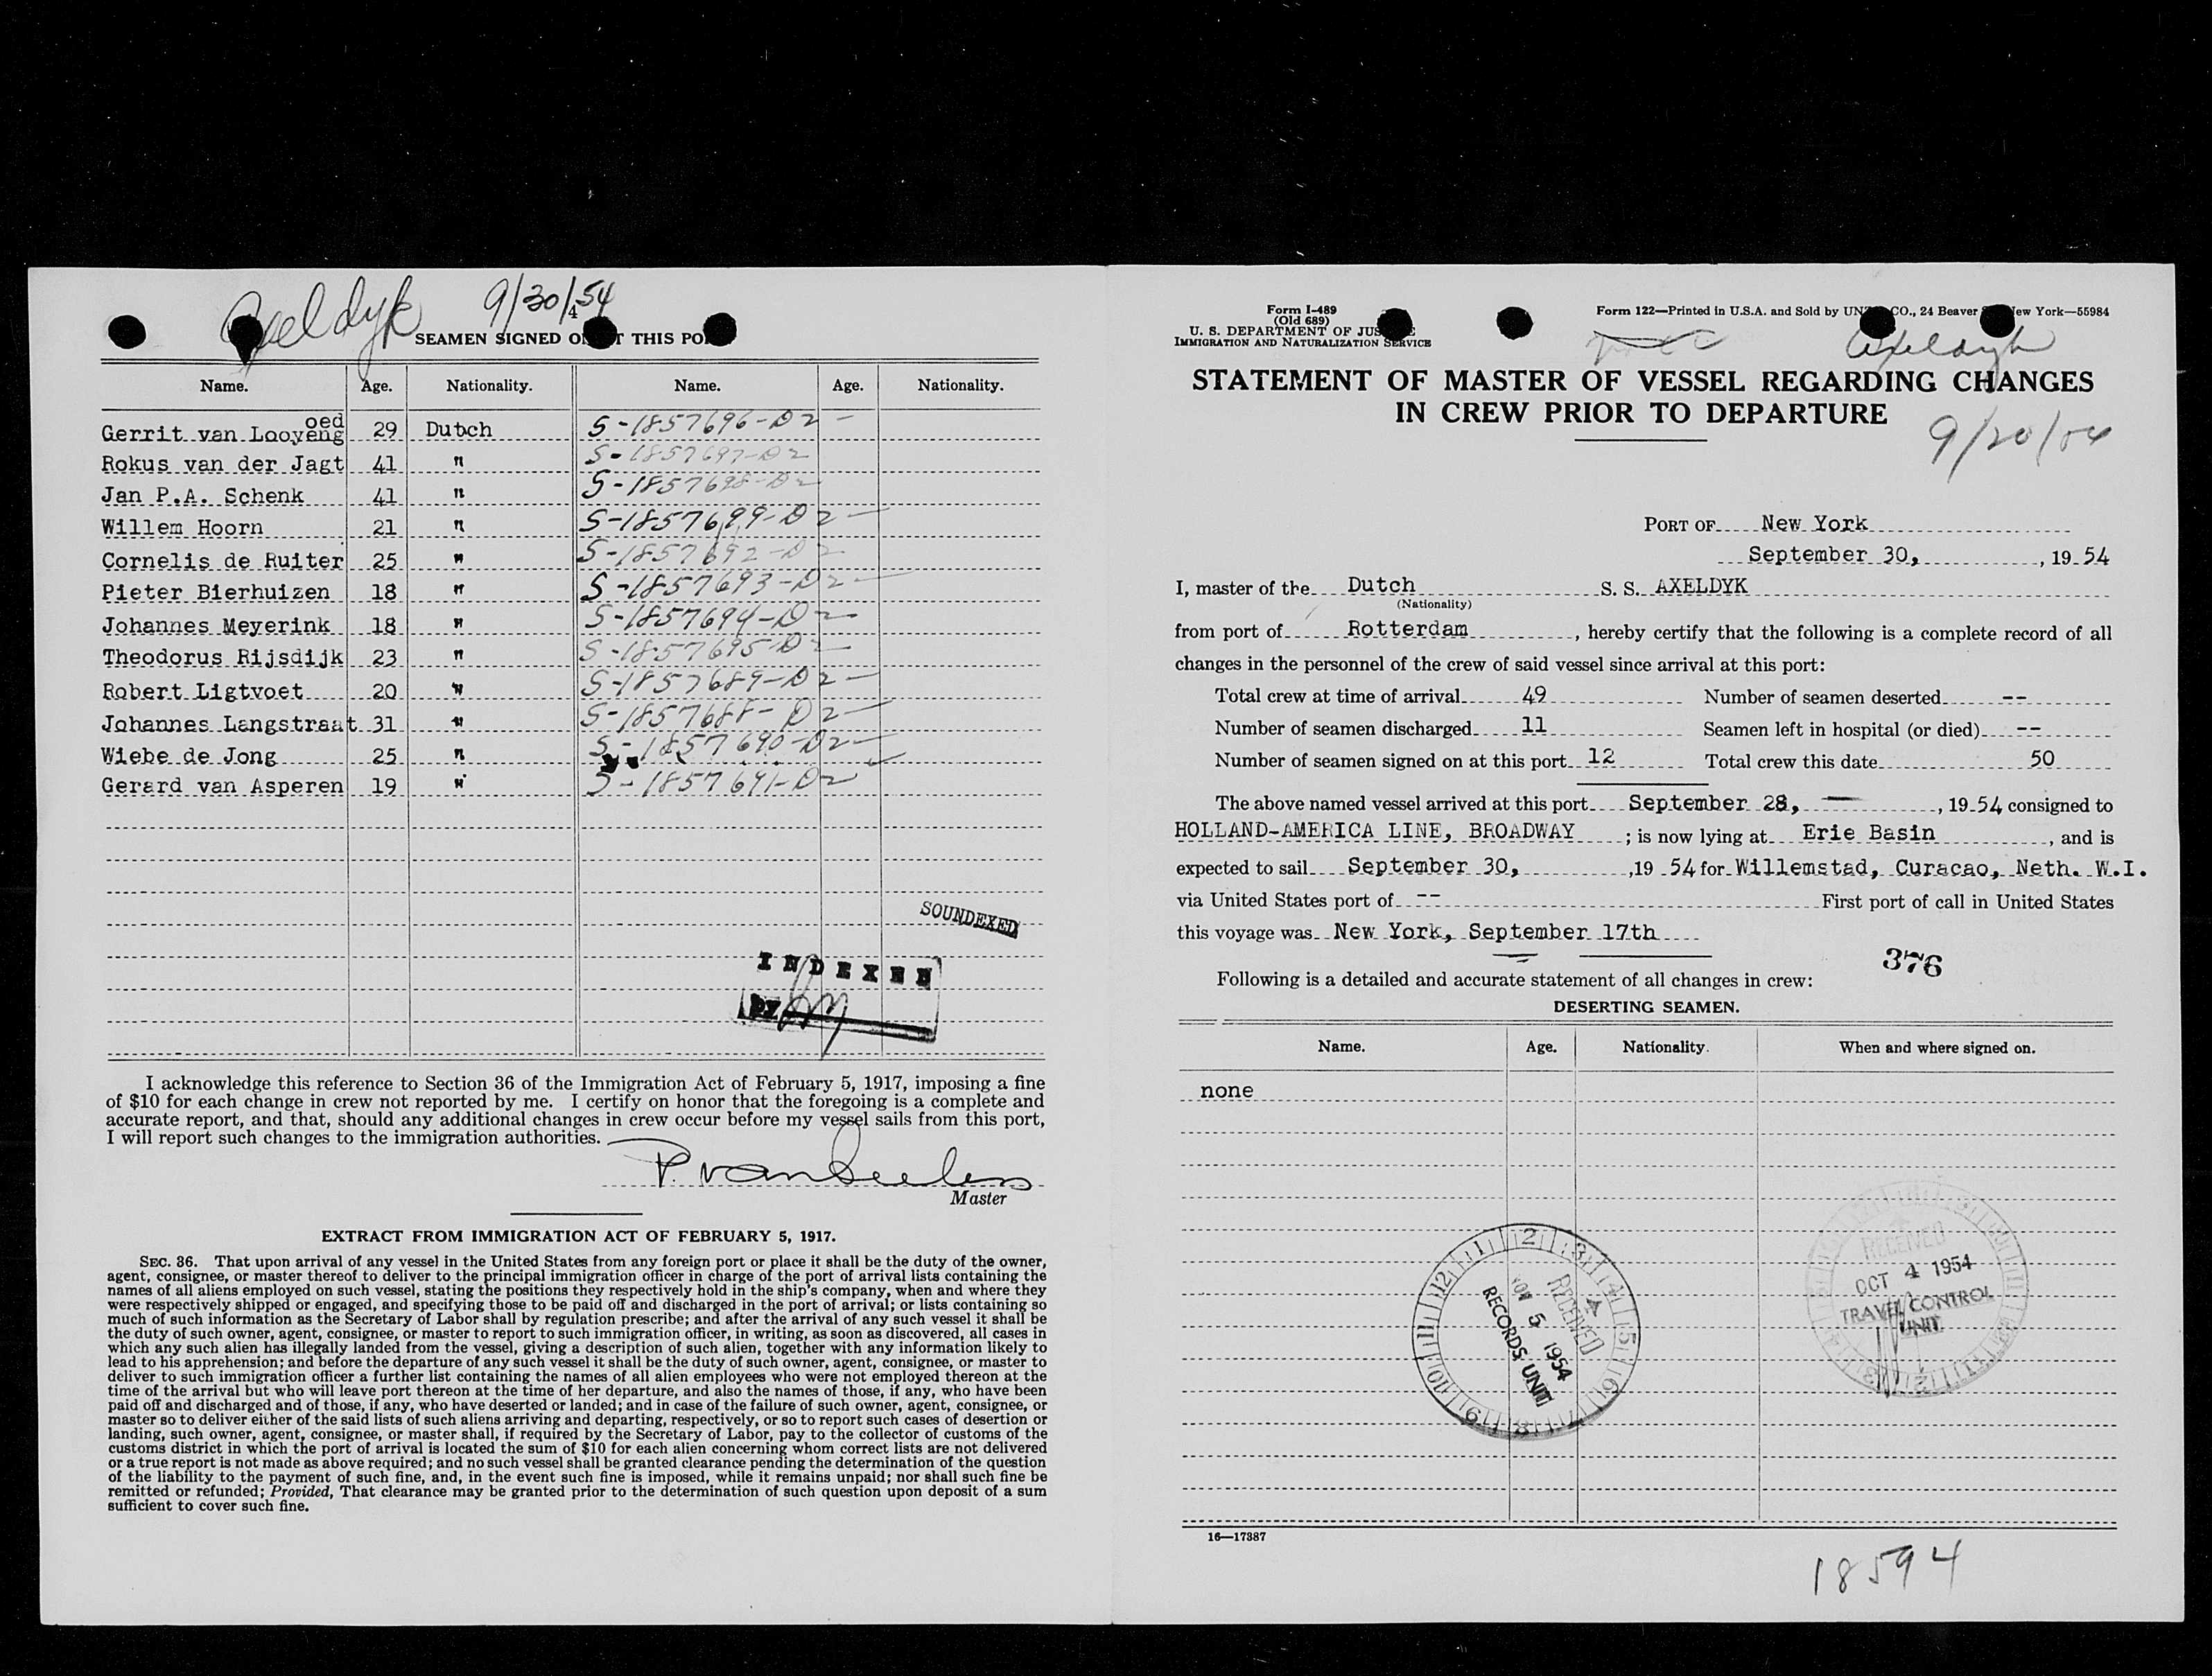 Axeldyk 9/30/54
4
SEAMEN SIGNED O T THIS PO
Name. Age. Nationality. Name. Age. Nationality.
oed
Gerrit van Looyeng 29 Dutch S-1857696-D2 -
Rokus van der Jagt 41 " S-1857697-D2
Jan P.A. Schenk 41 " S-1857698-D2
Willem Hoorn 21 " S-1857699-D2 -
Cornelis de Ruiter 25 " S-1857692-D2
Pieter Bierhuizen 18 " S-1857693-D2 -
Johannes Meyerink 18 " S-1857694-D2 -
Theodorus Rijsdijk 23 " S-1857695-D2 -
Robert Ligtvoet 20 " S-1857689-D2 -
Johannes Langstraat 31 " S-1857688-D2 -
Wiebe de Jong 25 " S-1857690-D2 -
Gerard van Asperen 19 " S-1857691-D2
SOUNDEXED
INDEXED
BY
I acknowledge this reference to Section 36 of the Immigration Act of February 5, 1917, imposing a fine
of $10 for each change in crew not reported by me. I certify on honor that the foregoing is a complete and
accurate report, and that, should any additional changes in crew occur before my vessel sails from this port,
I will report such changes to the immigration authorities.
Master
EXTRACT FROM IMMIGRATION ACT OF FEBRUARY 5, 1917.
SEC. 36. That upon arrival of any vessel in the United States from any foreign port or place it shall be the duty of the owner,
agent, consignee, or master thereof to deliver to the principal immigration officer in charge of the port of arrival lists containing the
names of all aliens employed on such vessel, stating the positions they respectively hold in the ship's company, when and where they
were respectively shipped or engaged, and specifying those to be paid off and discharged in the port of arrival; or lists containing so
much of such information as the Secretary of Labor shall by regulation prescribe; and after the arrival of any such vessel it shall be
the duty of such owner, agent, consignee, or master to report to such immigration officer, in writing, as soon as discovered, all cases in
which any such alien has illegally landed from the vessel, giving a description of such alien, together with any information likely to
lead to his apprehension; and before the departure of any such vessel it shall be the duty of such owner, agent, consignee, or master to
deliver to such immigration officer a further list containing the names of all alien employees who were not employed thereon at the
time of the arrival but who will leave port thereon at the time of her departure, and also the names of those, if any, who have been
paid off and discharged and of those, if any, who have deserted or landed; and in case of the failure of such owner, agent, consignee, or
master so to deliver either of the said lists of such aliens arriving and departing, respectively, or so to report such cases of desertion or
landing, such owner, agent, consignee, or master shall, if required by the Secretary of Labor, pay to the collector of customs of the
customs district in which the port of arrival is located the sum of $10 for each alien concerning whom correct lists are not delivered
or a true report is not made as above required; and no such vessel shall be granted clearance pending the determination of the question
of the liability to the payment of such fine, and, in the event such fine is imposed, while it remains unpaid; nor shall such fine be
remitted or refunded; Provided, That clearance may be granted prior to the determination of such question upon deposit of a sum
sufficient to cover such fine.
Form I-489
(Old 689)
U. S. DEPARTMENT OF JUS E
IMMIGRATION AND NATURALIZATION SERVICE
Form 122—Printed in U.S.A. and Sold by UNZ CO., 24 Beaver S ew York—55984
Axeldyk
STATEMENT OF MASTER OF VESSEL REGARDING CHANGES
IN CREW PRIOR TO DEPARTURE
PORT OF New York
September 30, , 19 54
I, master of the Dutch S. S. AXELDYK
(Nationality)
from port of Rotterdam , hereby certify that the following is a complete record of all
changes in the personnel of the crew of said vessel since arrival at this port:
Total crew at time of arrival 49 Number of seamen deserted --
Number of seamen discharged 11 Seamen left in hospital (or died) --
Number of seamen signed on at this port 12 Total crew this date 50
The above named vessel arrived at this port September 28, — , 19 54 consigned to
HOLLAND-AMERICA LINE, BROADWAY ; is now lying at Erie Basin , and is
expected to sail September 30, ,19 54 for Willemstad, Curacao, Neth. W.I.
via United States port of -- First port of call in United States
this voyage was New York, September 17th
376
Following is a detailed and accurate statement of all changes in crew:
DESERTING SEAMEN.
Name. Age. Nationality. When and where signed on.
none
RECEIVED
OCT 4 1954
TRAVEL CONTROL
UNIT
RECEIVED
NOV 5 1954
RECORDS UNIT
16—17387
18594